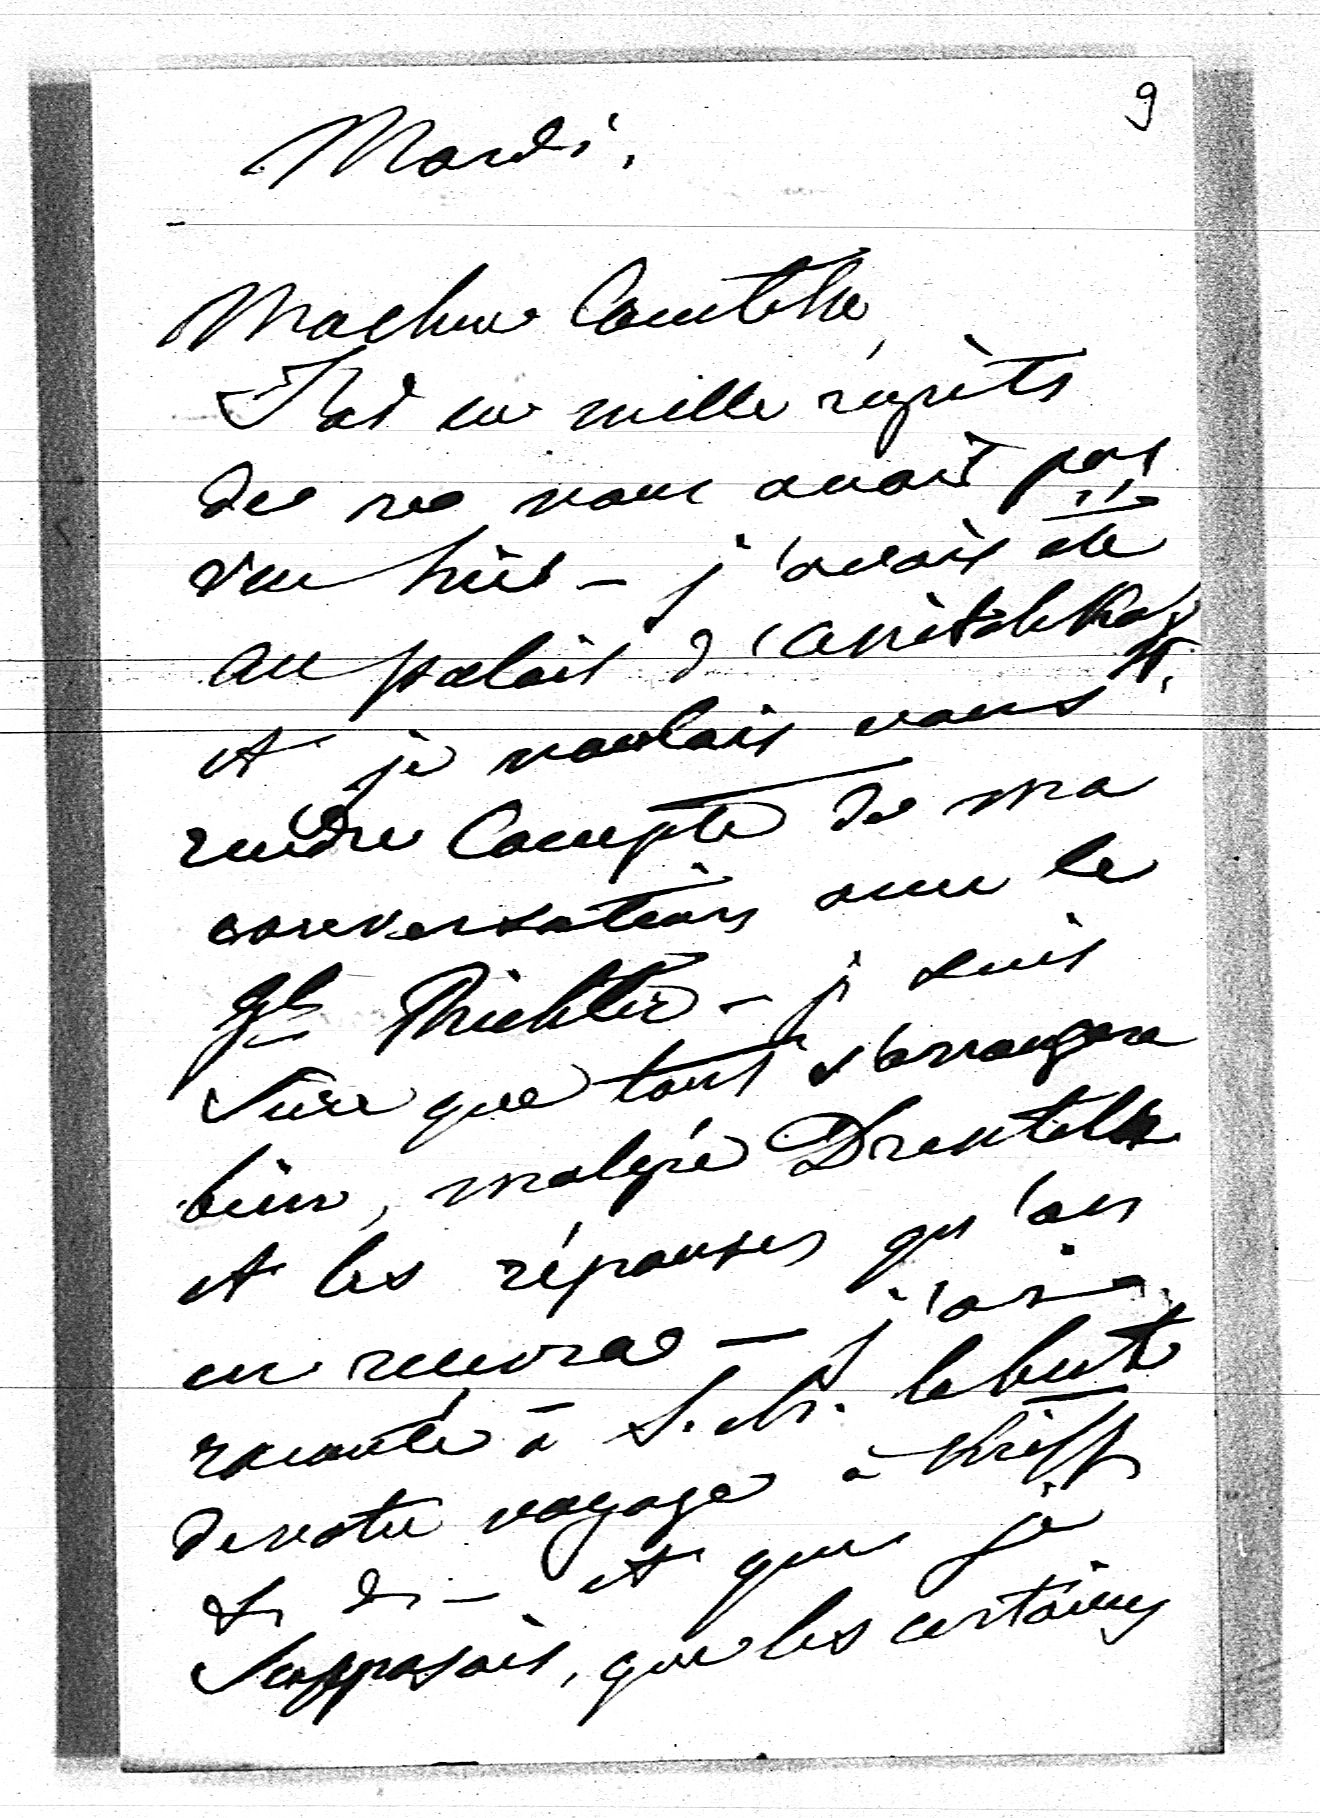 9
Mardi.
Ma chere Comtesse
J'ai eu mille régrèts
de ne vous avoir pas
vue hier – j'avais été
au palais d'Anitchkof
et je voulais vous
rendre Compte de ma
conversation avec le
Gl Richter – je suis
Sure que tout s'arrangera
bien, malgré Drentelen
et les réponses qu'on
en recevra – j'ai
raconté à S. M. le but
de votre voyage à Kieff
– et que je
Supposais, que les certains